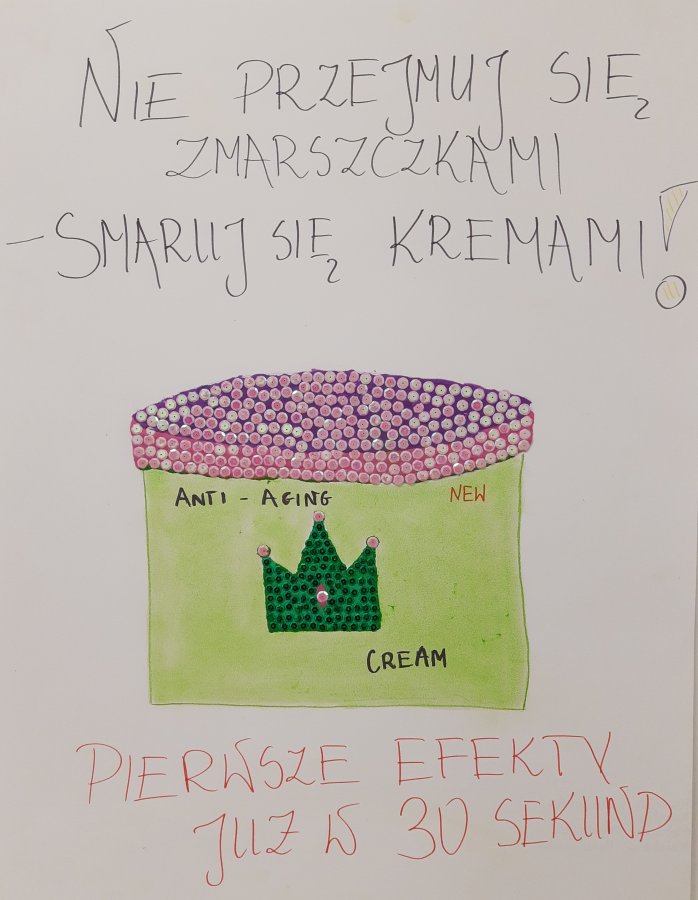 NIE PRZEJMUJ SIĘ
ZMARSZCZKAMI
- SMARUJ SIĘ KREMAMI!
ANTI - AGING NEW
CREAM
PIERWSZE EFEKTY
JUZ W 30 SEKUND